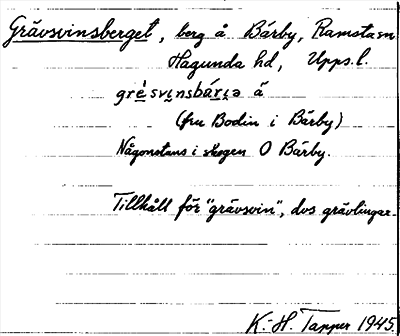 Grävsvinsberget, berg å Bärby, Ramsta sn
Hagunda hd, Upps.l.
(fru Bodin i Bärby)
Någonstans i skogen O Bärby.
Tillhåll för "grävsvin", dvs grävlingar.
K.-H. Tapper 1945.